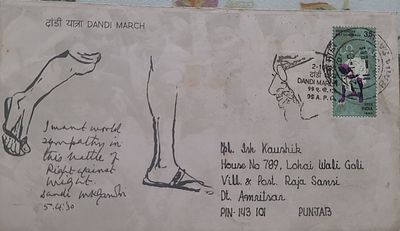 दांडी यात्रा DANDI MARCH
I want world
sympathy in
this battle of
Right against
Might.
Dandi MKGandhi
5.4.30
35
भारत INDIA
DANDI MARCH
99 ए. पी. ओ.
99 A.P.O.
Ish Kaushik
House No 789, Lohai Wali Gali
Vill. & Post. Raja Sansi
Dt. Amritsar
PIN- 143 101 PUNJAB